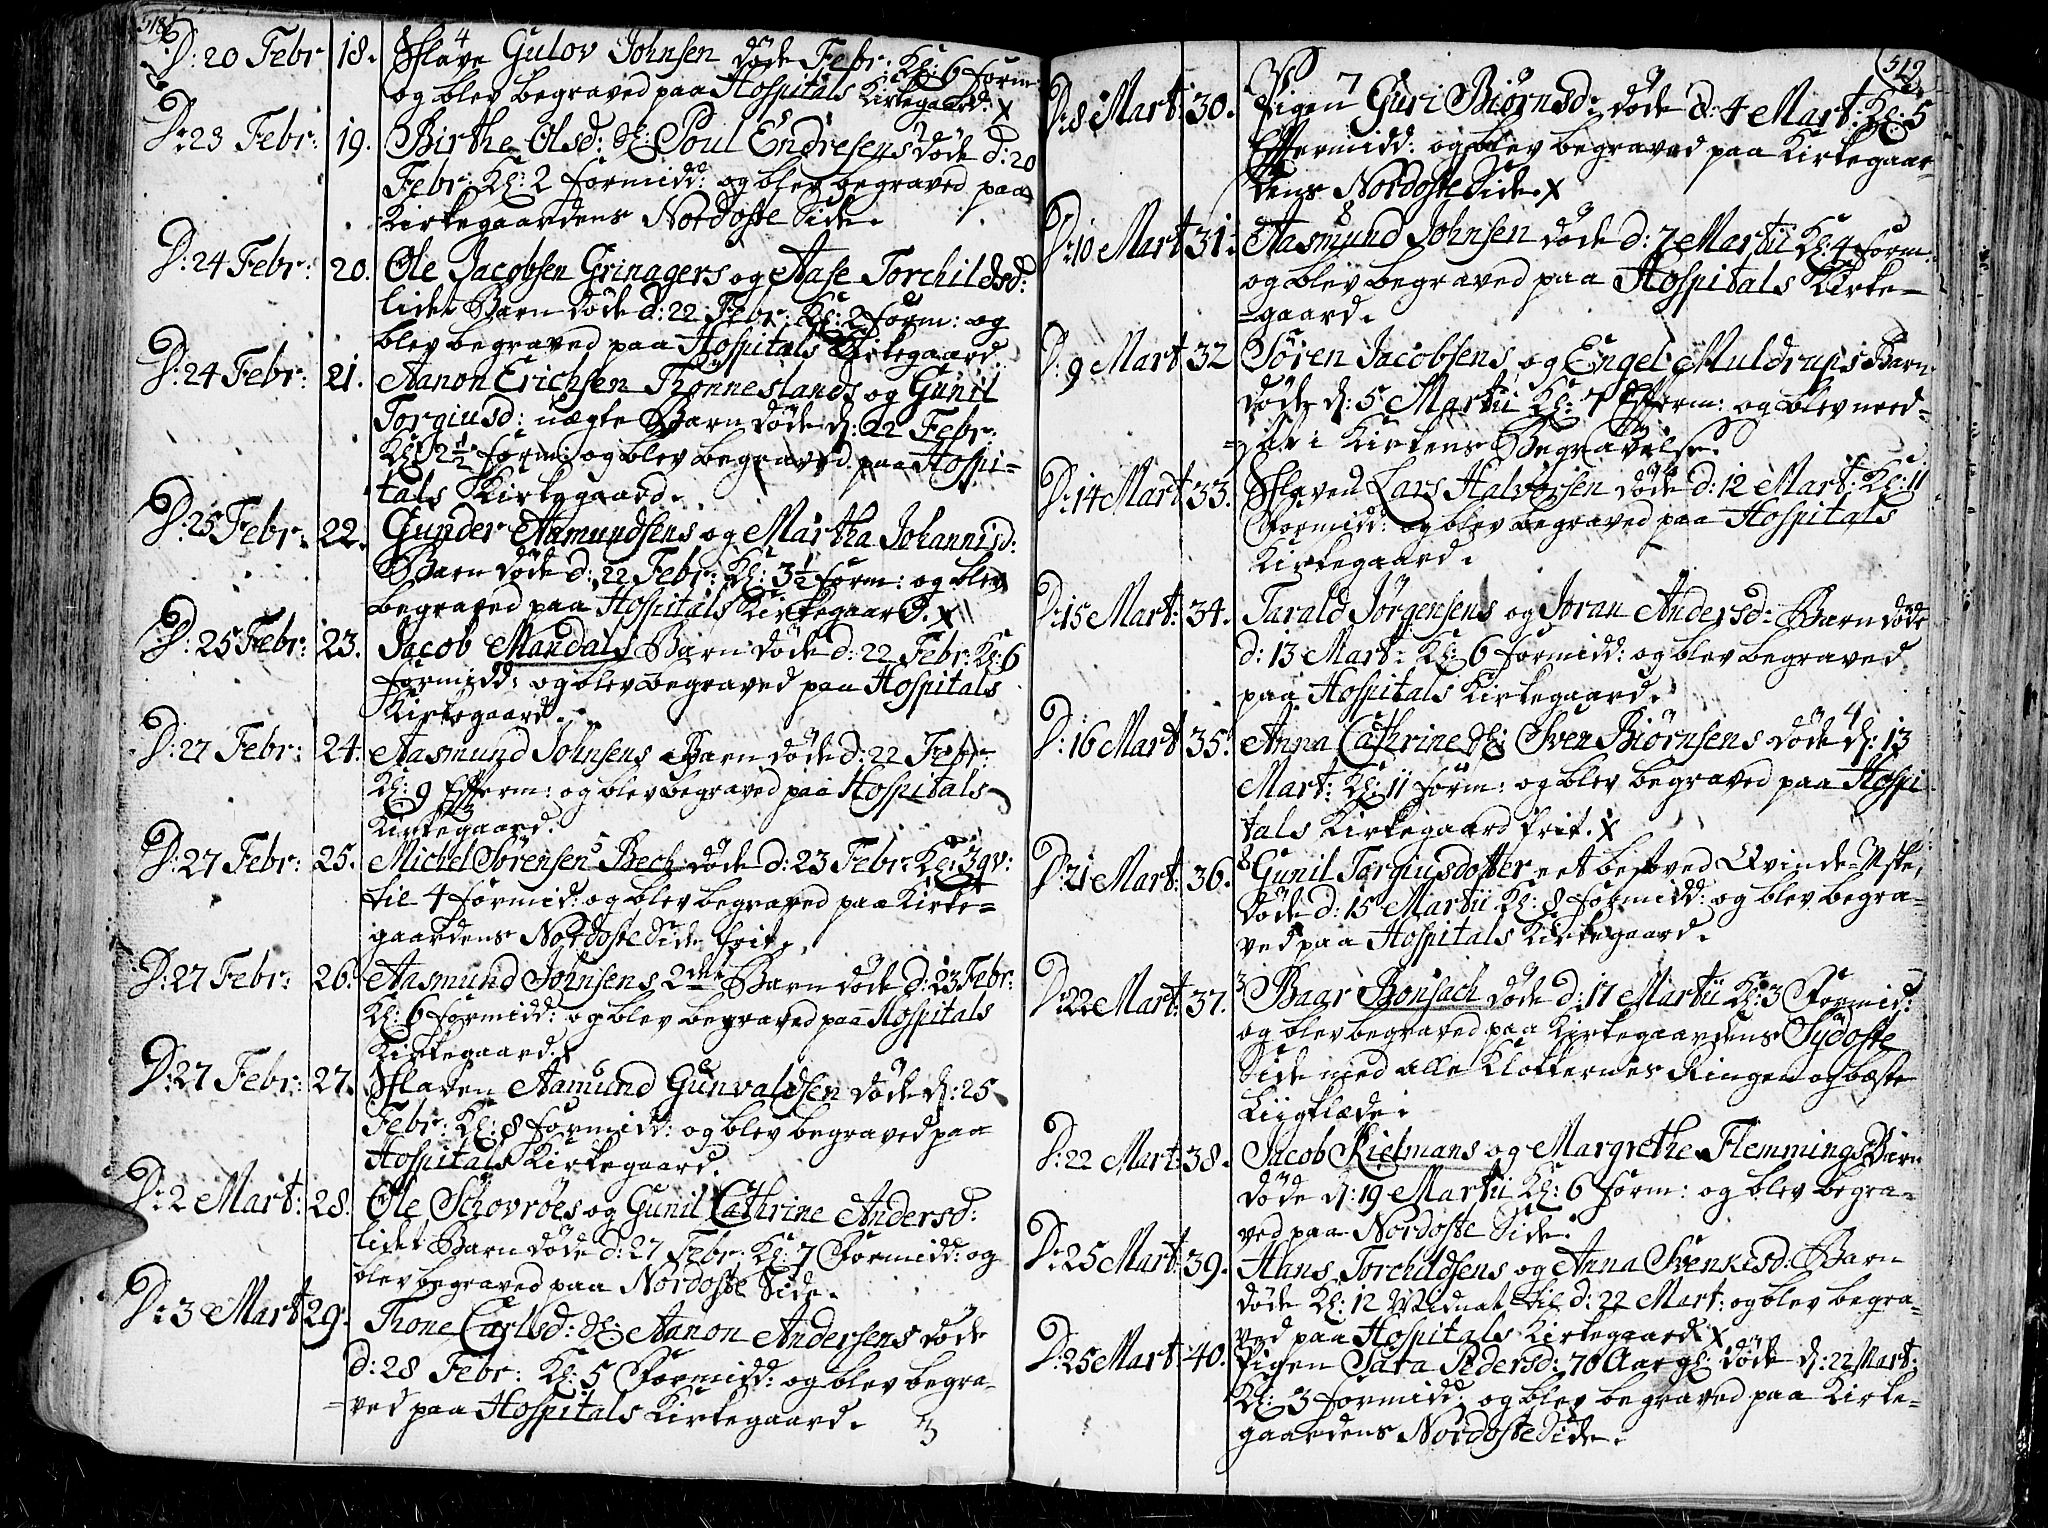 518
D: 20 Febr 18. Slave Gulov Johnsen døde Febr: Kl: 6 form:
og blev begraved paa Hospitals Kirkegaard: X
D: 23 Febr: 19. Birthe Olsd: Poul Endresens døde d: 20
Febr: Kl: 2 formidd: og blev begraved paa
Kirkegaardens Nordoste Side.
D: 24 Febr: 20. Ole Jacobsen Grinagers og Aase Torchildsd:
lidet Barn døde d: 22 Febr: Kl: 2 form: og
blev begraved paa Hospitals Kirkegaard.
D: 24 Febr: 21. Aanon Erichsen Trönneslands og Gunil
Torgiusd: uægte Barn døde d: 22 Febr:
Kl: 2½ form: og blev begraved paa Hospi=
tals Kirkegaard.
D: 25 Febr: 22. Gunder Aamundsens og Martha Johannisd:
Barn døde d: 22 Febr: Kl: 3½ form: og blev
begraved paa Hospitals Kirkegaard. X
D: 25 Febr: 23. Jacob Mandals Barn døde d: 22 Febr: Kl: 6
formidd: og blev begraved paa Hospitals
Kirkegaard.
D: 27 Febr: 24. Aasmund Johnsens Barn døde d: 22 Febr:
Kl: 9 Efterm: og blev begraved paa Hospitals
Kirkegaard.
D: 27 Febr: 25. Michel Sørensen Bech døde d: 23 Febr: Kl: 3 qv:
til 4 formid: og blev begraved paa Kirke=
gaardens Nordoste Side frit.
D: 27 Febr: 26. Aasmund Johnsens 2det Barn døde d: 23 Febr:
Kl: 6 formidd: og blev begraved paa Hospitals
Kirkegaard.
D: 27 Febr: 27. Slaven Aamund Gunvaldsen døde d: 25
Febr: Kl: 8 formidd: og blev begraved paa
Hospitals Kirkegaard.
D: 2 Mart: 28. Ole Schovröes og Gunil Cathrine Andersd:
lidet Barn døde d: 27 Febr: Kl: 7 Formidd: og
blev begraved paa Nordoste Side.
D: 3 Mart 29. Thone Carlsd: Aanon Andersens døde
d: 28 Febr: Kl: 5 Formidd: og blev begra=
=ved paa Hospitals Kirkegaard.
3
519
D: 8 Mart: 30. Pigen Guri Biörnsd: døde d: 4 Mart: Kl: 5
Eftermidd: og blev begraved paa Kirkegaar
dens Nordoste Side. X
D: 10 Mart 31: Aasmund Johnsen døde d: 7 Martii Kl: 4 form:
og blev begraved paa Hospitals Kirke=
=gaard.
D: 9 Mart: 32 Sören Jacobsens og Engel Muldrups Barn
døde d: 5 Martii Kl: 7 Efterm: og blev ned=
=sat i Kirkens Begravelse.
D: 14 Mart 33. Slaven Lars Halvorsen døde d: 12 Mart: Kl: 11
Formidd: og blev begraved paa Hospitals
Kirkegaard.
D: 15 Mart: 34. Tarald Jörgensens og Joran Andersd: Barn døde
d: 13 Mart: Kl: 6 formidd: og blev begraved
paa Hospitals Kirkegaard.
D: 16 Mart 35. Anna Cathrine Sven Biörnsens døde d: 13
Mart: Kl: 11 form: og blev begraved paa Hospi
tals Kirkegaard frit. X
D: 21 Mart: 36. Gunil Torgiusdotter
døde d: 15 Martii Kl: 8 formidd: og blev begra=
ved paa Hospitals Kirkegaard.
D: 22 Mart: 37. Baar Bonsach døde d: 17 Martii Kl: 3 Formid:
og blev begraved paa Kirkegaardens Sydoste
Side med alle Klokkernes Ringen og bæste
Liigklæde.
D: 22 Mart: 38. Jacob Kielmans og Margrethe Flemmings Barn
døde d: 19 Martii Kl: 6 form: og blev begra=
ved paa Nordoste Side.
D: 25 Mart: 39. Hans Torchildsens og Anna Svenkesd: Barn
døde Kl: 12 Midnat til d: 22 Mart: og blev begra=
ved paa Hospitals Kirkegaard X
D: 25 Mart 40. Pigen Sara Pedersd: 70 Aar gl: døde d: 22 Mart:
Kl: 3 formidd: og blev begraved paa Kirke=
gaardens Nordoste Side.